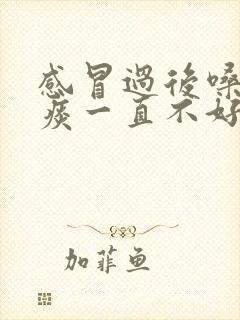 感冒過後嗓
痰一直不好
加菲鱼